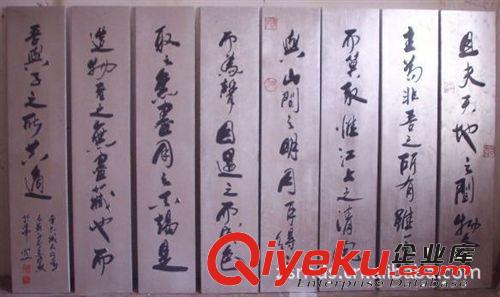 且夫天地之間物
主苟非吾之所有雖
而莫取惟江上之清風
與山間之明月耳得
而為聲目遇之而成色
取之無盡用之不竭是
造物者之無盡藏也而
吾與子之所共適
Qiyeku.com
企业库
Enterprise Database